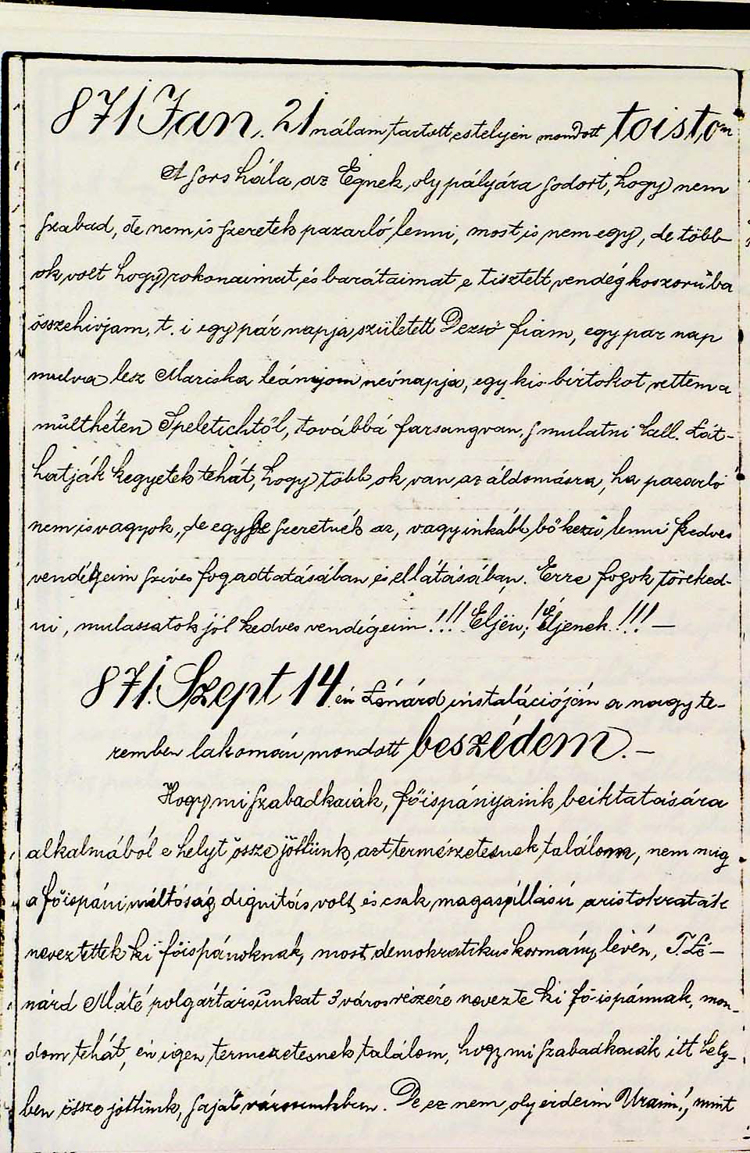 871 Jan. 21 nálam tartott estélyen mondott toisto
A sors hála, az Égnek, oly pályára sodort, hogy nem
szabad, de nem is szeretek pazarló lenni, most is nem egy, de több
ok volt hogy rokonaimat és barátaimat e tisztelt vendég koszorúba
összehivjam, t. i egy pár napja született Dezső fiam, egy par nap
mulva lesz Mariska leányom névnapja, egy kis birtokot vettem a
múlthéten Speletichtől, továbbá farsang van, s mulatni kell. Lát-
hatják kegyetek tehát, hogy több ok van az áldomásra, ha pazarló
nem is vagyok, de egy szeretnék az, vagy inkább bőkezű lenni kedves
vendégeim szíves fogadtatásában és ellátásában. Erre fogok töreked-
ni, mulassatok jól kedves vendégeim!!! Éljen! Éljenek!!! —
871. Szept 14 én Lénárd instalációján a nagy te-
remben lakomán mondott beszédem. —
Hogy mi szabadkaiak, főispánjaink beiktatására
alkalmából e helyt össze jöttünk, azt természetesnek találom, nem mig
a főispáni méltóság dignitás volt, és csak magas állású aristokraták
neveztettek ki főispánoknak, most demokratikus kormány lévén, T. Lé-
nárd Máté polgártársunkat 3 város részére nevezte ki fő-ispánnak, mon-
dom tehát, én igen termezetesnek találom, hogy mi szabadkaiak itt hely-
ben össze jöttünk, saját városunkban. De ez nem oly érdem Uraim!, mint